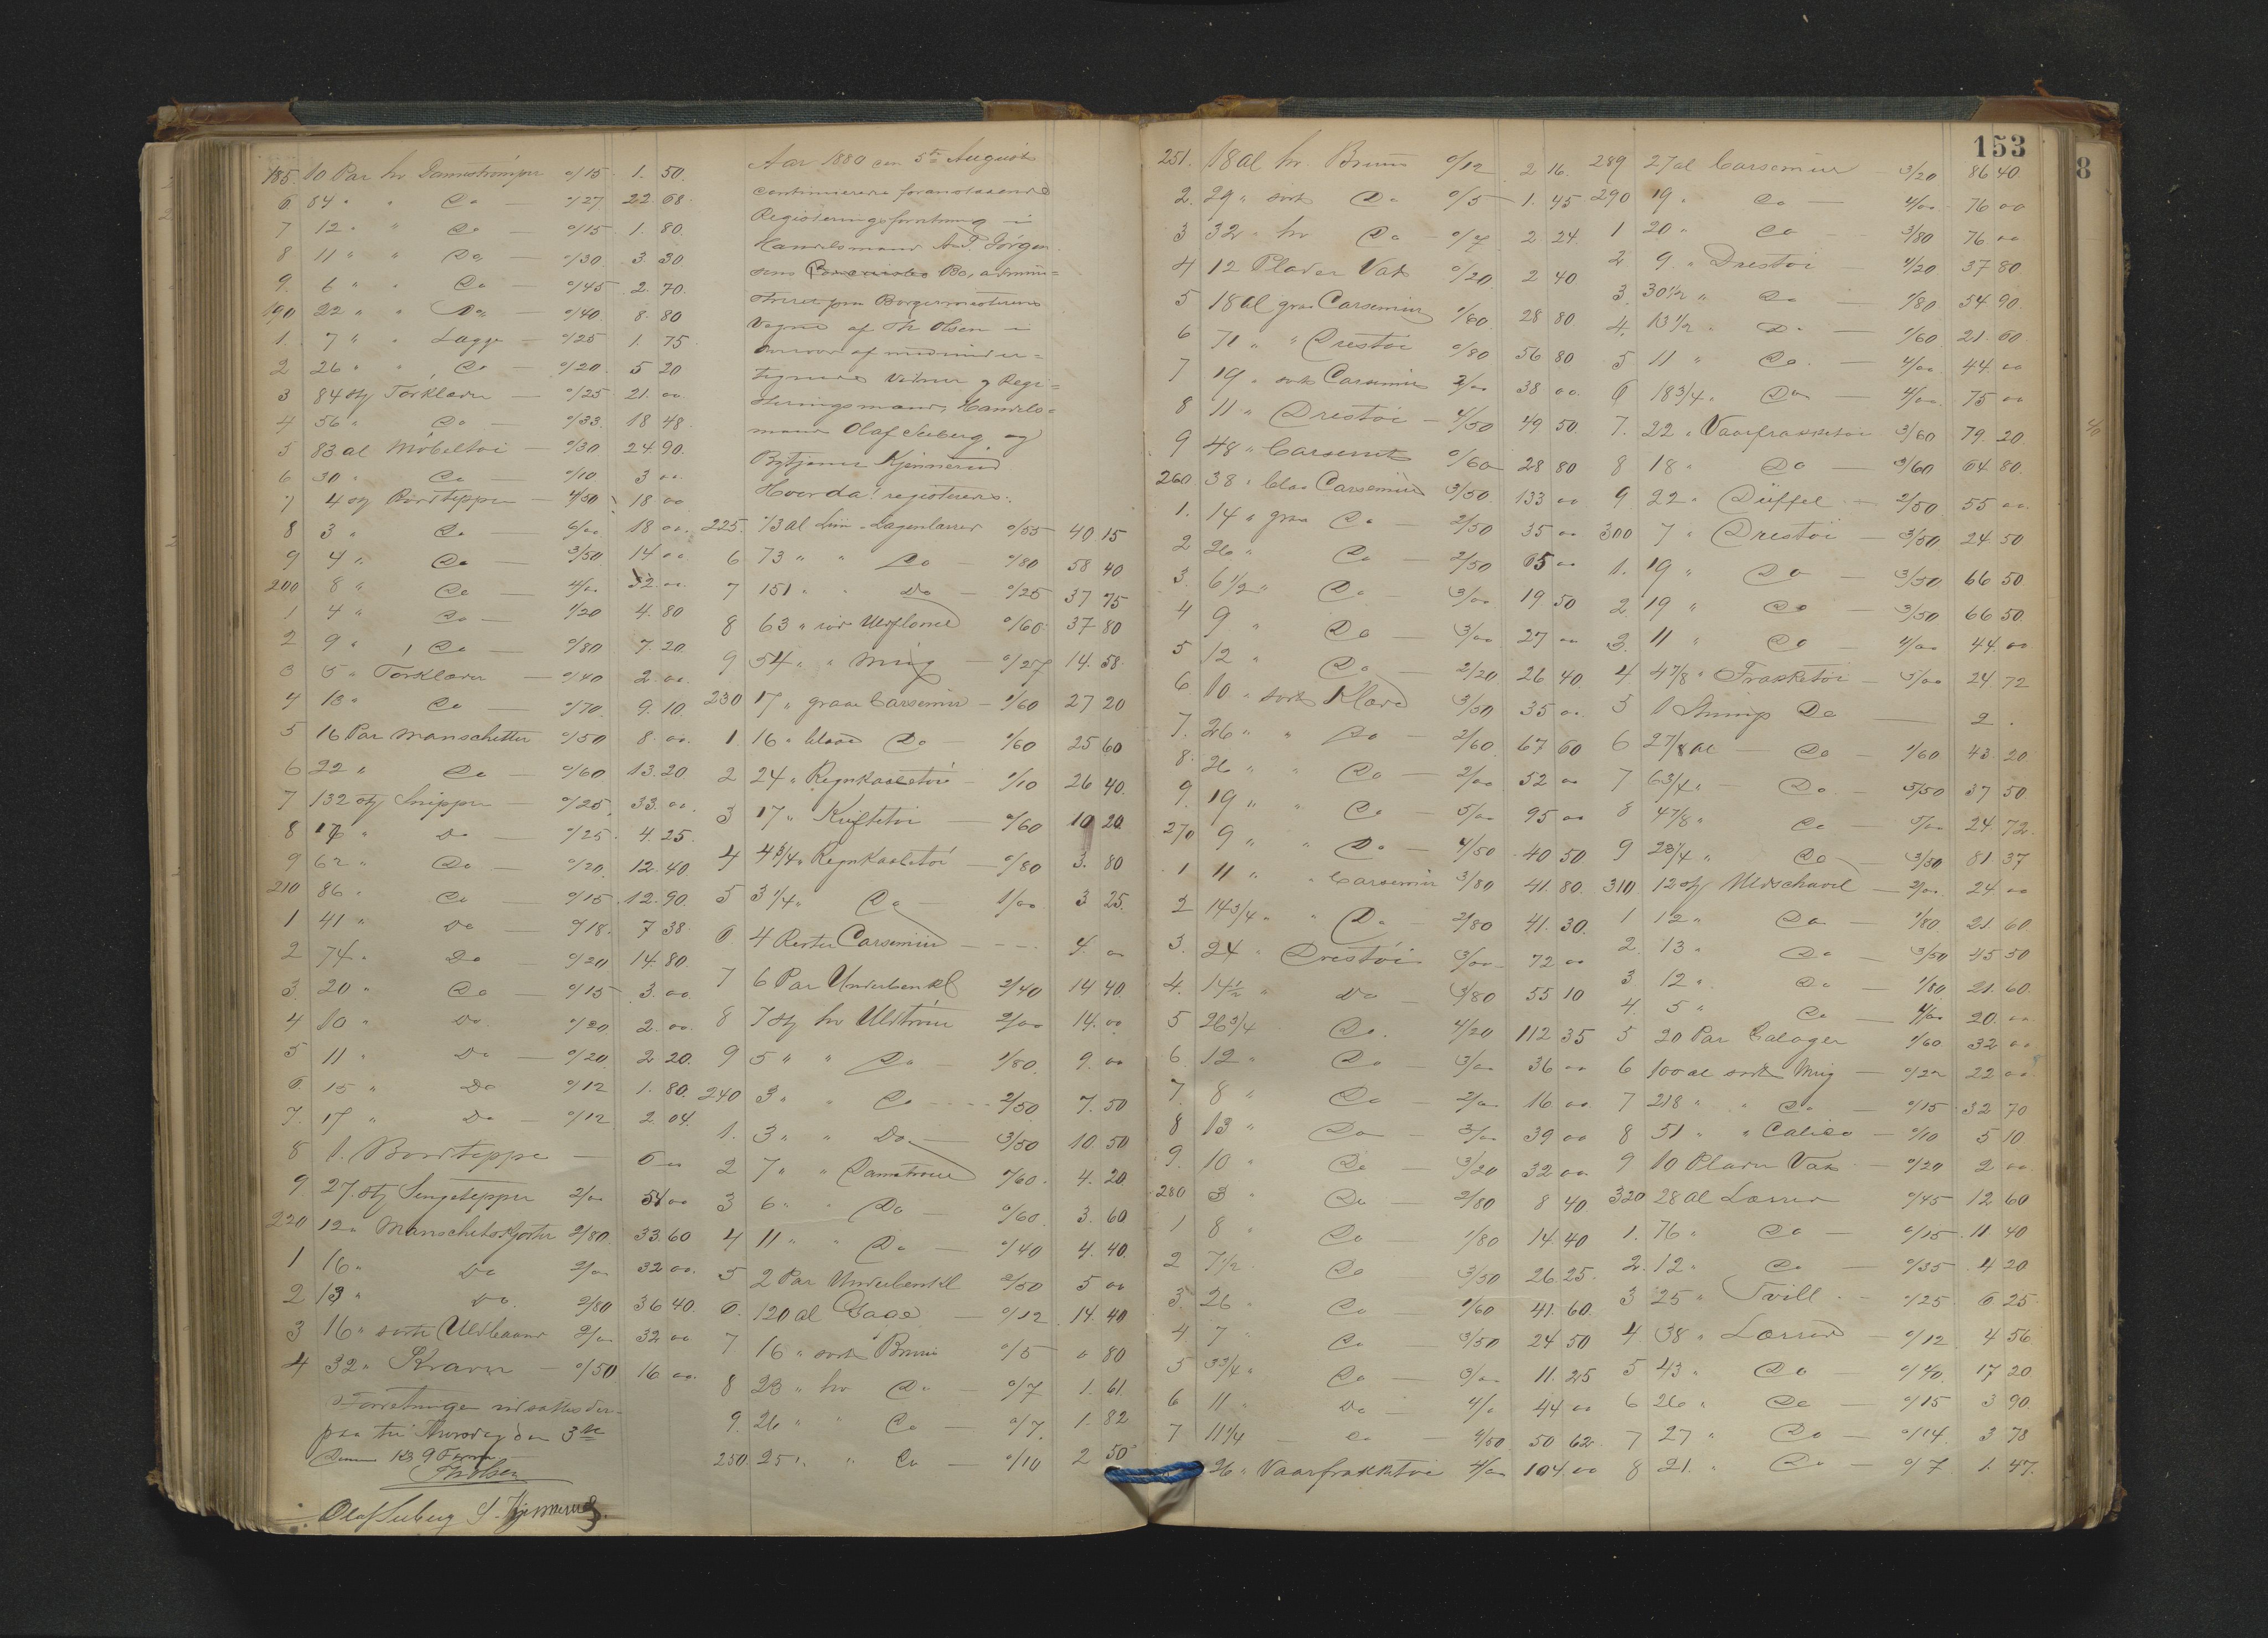 185. 10 Par hv Damestrømper 0/15 1. 50.
6. 84 " " Do — 0/27 22. 68.
7 12 " " Do — 0/15 1. 80.
8 11 " " Do — 0/30 3. 30
9. 6 " " Do — 0/45 2. 70.
190 22 " " Do — 0/40 8. 80
1. 7 " " Lagge — 0/25 1. 75
2 26 " " Do — 0/20 5 20
3 84 stj Tørklæder — 0/25 21. 00
4 56 " Do — 0/33 18 48
5 83 al Møbeltøi — 0/30 24 90.
6 30 " Do — 0/10 3 00
7 4 stj Bordtepper — 4/50 18 00
8 3 " Do — 6/00 18 00
9 4 " Do — 3/50 14 00
200 8 " Do — 4/00 32 00
1 4 " Do — 1/20 4. 80
2 9 " Do — 0/80 7. 20
3 5 " Tørklæder — 0/40 2. 00
4 13 " Do — 0/70 9. 10.
5 16 Par Manschetter 0/50 8. 00
6 22 " Do — 0/60 13. 20
7 132 stj Snipper — 0/25 33. 00
8 17 " Do — 0/25 4. 25.
9 62 " Do — 0/20 12. 40
210 86 " Do — 0/15 12. 90.
1 41 " Do — 0/18 7 38
2 74 " Do — 0/20 14. 80
3. 20 " Do — 0/15 3. 00
4 10 " Do 0/20 2. 00
5 11 " Do — 0/20 2 20.
6 15 " Do 0/12 1. 80.
7. 17 " Do — 0/12 2. 04.
8 1. Bordteppe — 6 00
9 27. stj Sengetepper 2/00 54 00
220 12 " Manschetskjorter 2/80 33. 60
1 16 " Do 2/00 32 00.
2 13 " Do. 2/80 36 40.
3 16 " sorte Uldbaand 2/00 32 00
4 32 " Kraver — 0/50 16 00
Forretningen udsattes der-
paa til Thorsdag den 5te
Dennes Kl 9 Form
Th Olsen
Olaf Seeberg S. Kjennerud
Aar 1880 den 5te August
continueredes foranstaaende
Registreringsforretning i
Handelsmand A. P. Jørgen
sens Bo, admini=
streret paa Borgermesterens
Vegne af Th Olsen i
Overvær af medunder=
tegnede Vidner og Regi=
streringsmænd, Handels=
mand Olaf Seeberg og
Bytjener Kjennerud
Hvorda! registreredes:
225. 73 al Liin-Lagenlærred 0/55 40 15
6 73 " " Do — 0/80 58 40
7 151 " " Do — 0/25 37 75
8 63 " rød Uldflonel 0/60 37 80
9 54 " " Ming — 0/27 14. 58.
230 17 " graa Carsemir — 1/60 27 20
1. 16 " blaae Do — 1/60 25 60
2 24 " Regnkaabetøi — 1/10 26 40.
3 17 " Kuftetøi — 0/60 10 20
4 4 3/4 " Regnkaabetøi — 0/80 3. 80
5 3 1/4 " Do — 1/00 3 25.
6. 4 Rester Carsemir — 4. 00
7 6 Par Underbenkl 2/40 14 40.
8 7 stj hv Uldtrøier 2/00 14. 00
9 5 " " Do — 1/80 9. 00
240 3 " " Do — 2/50 7. 50
1. 3 " " Do — 3/50 10. 50
2 7 " " Dametrøier 0/60 4. 20
3 6 " " Do — 0/60 3. 60
4 11 " " Do — 0/40 4. 40.
5 2 Par Underbenkl 2/50 5 00
6. 120 al Gaze — 0/12 14. 40
7 16 " sort Bruns 0/5 0 80
8 23 " hv Do — 0/7 1. 61.
9. 26 " " Do — 0/7 1. 82
250 25 " " Do — 0/10 2 50
153
251. 18 al hv Bruns 0/12 2 16.
2. 29 " sort Do 0/5 1. 45
3 32 " hv Do — 0/7 2 24.
4 12 Plader Vat 0/20 2 40
5 18 al graa Carsemir 1/60 28 80
6 71 " " Drestøi 0/80 56 80
7 19 " sort Carsemir 2/00 38 00
8 11 " Drestøi — 4/50 49 50
9 48 " Carsemir 0/60 28 80
260 38 " blaa Carsemir 3/50 133 00
1. 14 " graa Do — 2/50 35 00
2 26 " Do — 2/50 65 00
3. 6 1/2 " Do — 3/00 19 50
4 9 " Do — 3/00 27 00
5 12 " Do — 2/20 26 40
6. 10 " sort Klæde 3/50 35 00
7. 26 " " Do — 2/60 67 60
8. 26 " " Do — 2/00 52 00
9. 19 " " Do — 5/00 95 00
270 9 " " Do — 4/50 40 50
1 11 " " Carsemir 3/80 41. 80.
2 14 3/4 " " Do — 2/80 41. 30.
3. 24 " Drestøi 3/00 72 00
4. 14 1/2 " Do — 3/80 55 10
5 26 3/4 Do. 4/20 112 35
6 12 " Do — 3/00 36 00
7. 8 " Do — 2/00 16 00
8 13 " Do — 3/00 39 00
9. 10 " Do — 3/20 32 00
280 3 " Do — 2/80 8 40
1 8 " Do — 1/80 14 40
2 7 1/2 Do 3/50 26 25
3. 26 " Do — 1/60 41. 60.
4. 7 " Do — 3/50 24 50
5 3 3/4 " Do — 3/00 11. 25
6 11 " Do — 4/00 44 00
7 11 1/4 — Do — 4/50 50 62
26 " Vaarfrakketøi 4/00 104 00
289 27 al Carsemir — 3/20 86 40.
290 19 " Do — 4/00 76 00
1 20 " Do — 3/80 76 00
2 9 " Drestøi — 4/20 37 80
3. 30 1/2 " Do — 1/80 54 90.
4. 13 1/2 " Do — 1/60 21. 60
5 11 " Do. — 4/00 44. 00
6 18 3/4 " Do — 4/00 75 00
7. 22 " Vaarfrakketøi 3/60 79. 20
8 18 " Do — 3/60 64 80.
9. 22 " Düffel — 2/50 55 00
300 7 " Drestøi — 3/50 24. 50
1. 19 " Do — 3/50 66 50
2. 19 " Do — 3/50 66 50.
3. 11 " Do — 4/00 44. 00
4 4 7/8 " Frakketøi — 5/00 24 72
5 1 Stump Do — 2 .
6 27/8 al — Do — 1/60 43. 20.
7 6 3/4 " — Do. — 5/50 37 50.
8 4 7/8 " Do — 5/00 24 72.
9 23 1/4 " Do — 3/50 81 37
310 12 stj Uldschavl — 2/00 24 00
1 12 " Do — 1/80 21. 60
2. 13 " Do — 3/50 45 50
3 12 " Do — 1/80 21. 60.
4. 5 " Do — 4/00 20. 00
5 20 Par Galoger 1/60 32 00
6 100 al sort Ming — 0/22 22 00
7 218 " " Do — 0/15 32 70
8 51 " " Calico — 0/10 5 10
9 10 Plader Vat — 0/20 2 00
320 28 al Lærred 0/45 12 60
1. 76 " Do — 0/15 11. 40
2. 12 " Do — 0/35 4 20
3 25 " Tvill — 0/25 6 25
4. 38 " Lærred — 0/12 4 56
5 43 " Do — 0/40 17 20
6 26 " Do — 0/15 3 90.
7 27 " Do — 0/14 3 78
8 21. " Do — 0/7 1. 47.
8